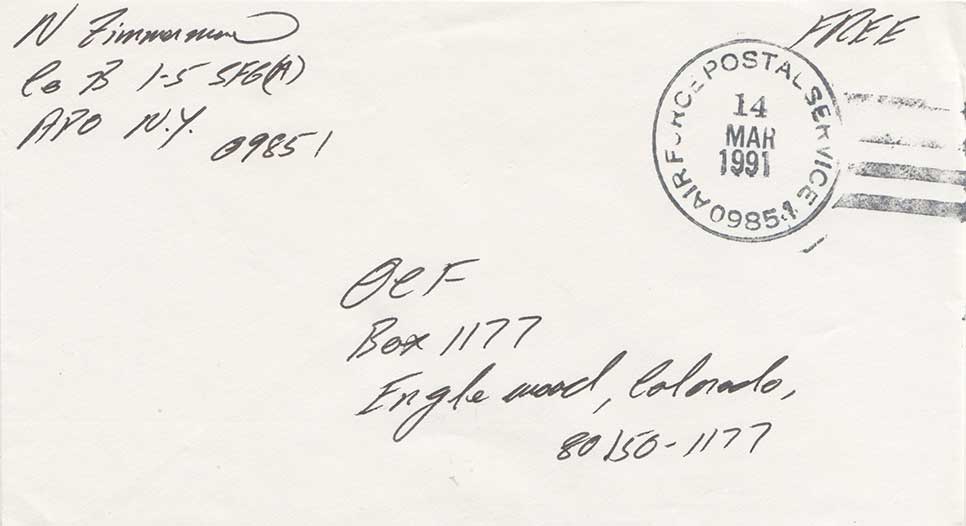 N Zimmerman
Co B 1-5 SFG(A)
APO N.Y.
09851
FREE
AIR FORCE POSTAL SERVICE
14
MAR
1991
09851
OCF
Box 1177
Englewood, Colorado,
80150-1177